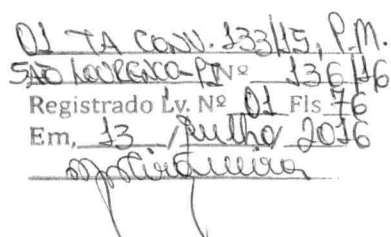 01 TA CONV. 133/15, P.M.
SÃO LOURENÇO-PI Nº 136/16
Registrado Lv. Nº 01 Fls 76
Em, 13 / Julho / 2016